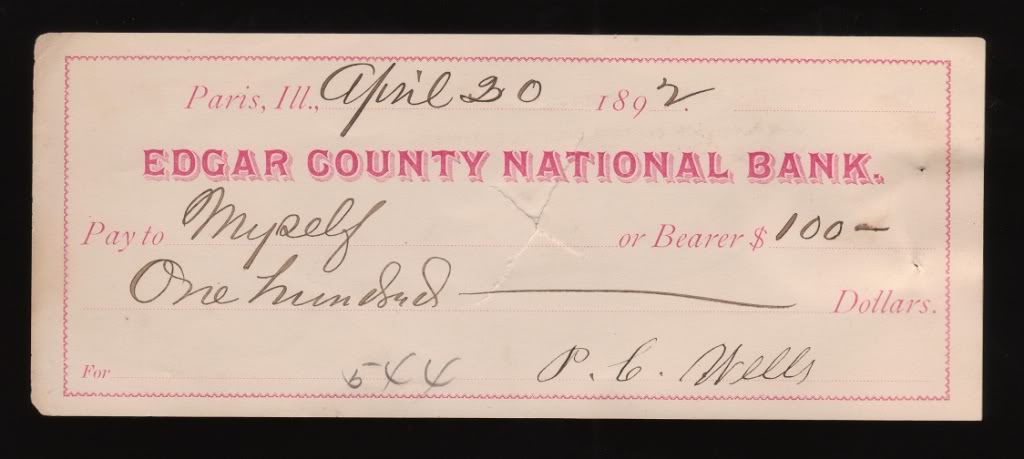 Paris, Ill., April 30 1892.
EDGAR COUNTY NATIONAL BANK.
Pay to Myself or Bearer $ 100 —
One hundred — Dollars.
For 544 P. C. Wells